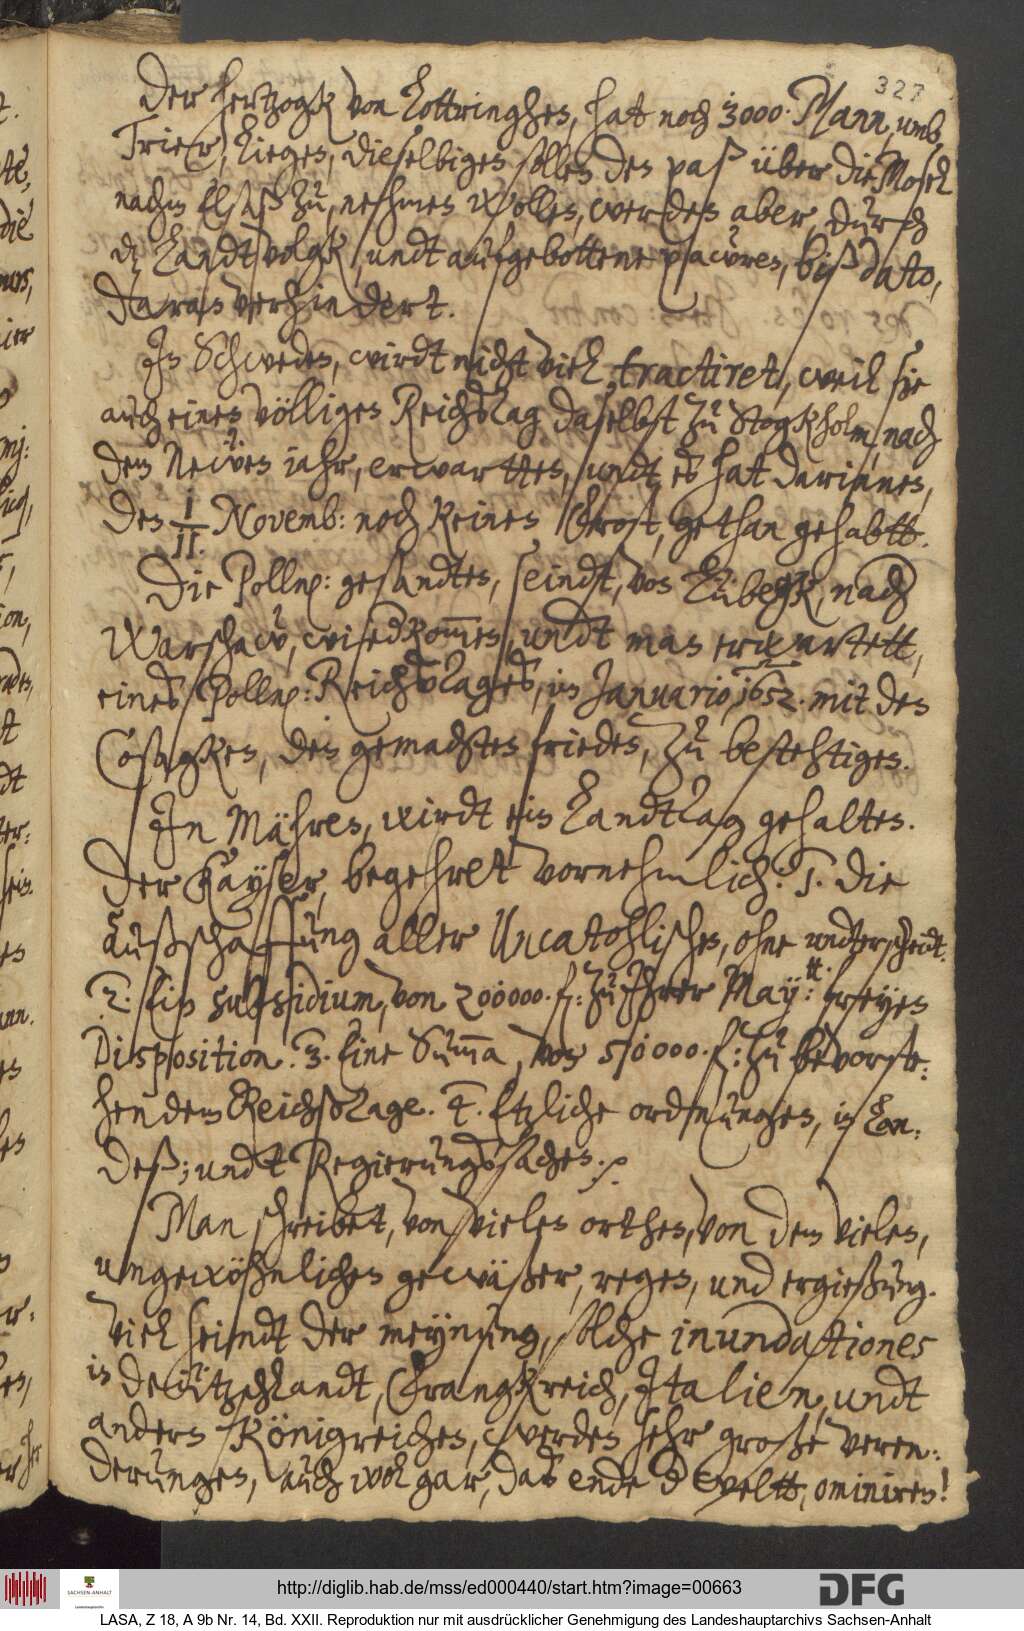 327
Der Hertzogk von Lottringhen, hat noch 3000. Mann, umb
Trier, liegen, dieselbigen sollen den paß über die Mosel
nachm Elsaß zu, nehmen wollen, werden aber, durch
dz Landtvolgk, undt aufgebottene pawren, biß dato,
daran verhindert.
In Schweden, wirdt nicht viel tractiret, weil sie
auch einen völligen ReichsTag daselbst zu Stogkholm, nach
dem Newen iahr, erwartten, undt es hat darinnen,
den 1/11. Novemb: noch keinen Frost, gethan gehabtt.
Die Polln: gesandten, seindt, von Lübegk, nach
Warschaw, wiederkommen, undt man erwartett,
eines Polln: ReichsTages, in Januario, 1652. mit den
Cosagken, den gemachten frieden, zu bestehtigen.
In Mähren, wirdt ein LandtTag gehalten.
Der Kayser, begehret vornehmlich: 1. die
Außschaffung aller Uncatohlischen, ohne underscheidt.
2. Ein subsidium, von 200000. f: zu Ihrer May:tt: freyen
Disposition. 3. Eine Summa, von 50000. f: zu bevorste:
hendem ReichsTage. 4. Etzliche ordnungen, in Lan:
deß; undt Regierungssachen. ./.
Man schreibet, von vielen orthen, von dem vielen,
ungewöhnlichen gewäßer, regen, und ergießung.
Viel seindt der meynung, solche inundationes
in Dewtzschlandt, Frangkreich, Italien, undt
andern Königreichen, werden sehr große veren:
derungen, auch wol gar, das ende d weltt, ominiren!
http://diglib.hab.de/mss/ed000440/start.htm?image=00663
DFG
SACHSEN-ANHALT
LASA, Z 18, A 9b Nr. 14, Bd. XXII. Reproduktion nur mit ausdrücklicher Genehmigung des Landeshauptarchivs Sachsen-Anhalt